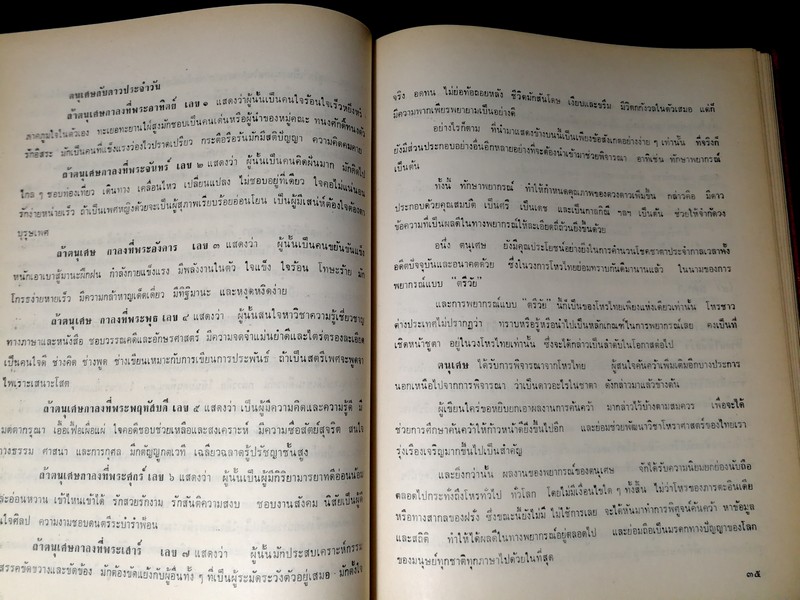 ตนุเศษกับดาวประจำวัน
ถ้าตนุเศษกาลงที่พระอาทิตย์ เลข ๑ แสดงว่าผู้นั้นเป็นคนใจร้อนใจเร็วหยิ่งทรนง
ภาคภูมิใจในตัวเอง ทะเยอทะยานใฝ่สูงมักชอบเป็นคนเด่นหรือผู้นำของหมู่คณะ ทนงศักดิ์ทนงตัว
รักอิสระ มักเป็นคนที่แข็งแรงว่องไวปราดเปรียว กระตือรือร้นมักมีสติปัญญา ความคิดคมคาย
ถ้าตนุเศษกาลงที่พระจันทร์ เลข ๒ แสดงว่า ผู้นั้นเป็นคนคิดฝันมาก มักคิดไป
ไกล ๆ ชอบท่องเที่ยว เดินทาง เคลื่อนไหว เปลี่ยนแปลง ไม่ชอบอยู่ที่เดียว ใจคอไม่แน่นอน
รักง่ายหน่ายเร็ว ถ้าเป็นเพศหญิงด้วยจะเป็นผู้สุภาพเรียบร้อยอ่อนโยน เป็นผู้มีเสน่ห์ต้องใจต้องตา
บุรุษเพศ
ถ้าตนุเศษ กาลงที่พระอังคาร เลข ๓ แสดงว่า ผู้นั้นเป็นคนขยันขันแข็ง
หนักเอาเบาสู้มานะฝึกฝน กำลังกายแข็งแรง มีพลังงานในตัว ใจแข็ง ใจร้อน โทษะร้าย มัก
โกรธง่ายหายเร็ว มีความกล้าหาญเด็ดเดี่ยว มีทิฐิมานะ และหงุดหงิดง่าย
ถ้าตนุเศษ กาลงที่พระพุธ เลข ๔ แสดงว่า ผู้นั้นสนใจหาวิชาความรู้เชี่ยวชาญ
ทางภาษาและหนังสือ ชอบวรรณคดีและอักษรศาสตร์ มีความจดจำแม่นยำดีและไตร่ตรองละเอียด
เป็นคนใจดี ช่างคิด ช่างพูด ช่างเขียนเหมาะกับการเขียนการประพันธ์ ถ้าเป็นสตรีเพศจะพูดจา
ไพเราะเสนาะโสต
ถ้าตนุเศษกาลงที่พระพฤหัสบดี เลข ๕ แสดงว่า เป็นผู้มีความคิดและความรู้ดี มี
เมตตากรุณา เอื้อเฟื้อเผื่อแผ่ ใจคอดีชอบช่วยเหลือและสงเคราะห์ มีความซื่อสัตย์สุจริต สนใจ
ทางธรรม ศาสนา และการกุศล มีกตัญญูกตเวที เฉลียวฉลาดรู้ปรัชญาชั้นสูง
ถ้าตนุเศษกาลงที่พระศุกร์ เลข ๖ แสดงว่า ผู้นั้นเป็นผู้มีกิริยามารยาทดีอ่อนน้อม
และอ่อนหวาน เข้าไหนเข้าได้ รักสวยรักงาม รักสันติความสงบ ชอบงานสังคม นิสัยเป็นผู้ดี
สนใจศิลป ความงามชอบดนตรีระบำรำฟ้อน
ถ้าตนุเศษกาลงที่พระเสาร์ เลข ๗ แสดงว่า ผู้นั้นมักประสบเคราะห์กรรม
อุปสรรคขัดขวางและขัดข้อง มักต้องขัดแย้งกับผู้อื่นทั้ง ๆ ที่เป็นผู้ระมัดระวังตัวอยู่เสมอ มักตั้งใจ
จริง อดทน ไม่ย่อท้อถอยหลัง ชีวิตมักสันโดษ เงียบและขรึม มีวิตกกังวลในตัวเสมอ แต่ก็
มีความพากเพียรพยายามเป็นอย่างดี
อย่างไรก็ตาม ที่นำมาแสดงข้างบนนี้เป็นเพียงข้อสังเกตอย่างง่าย ๆ เท่านั้น ที่จริงก็
ยังมีส่วนประกอบอย่างอื่นอีกหลายอย่างที่จะต้องนำเข้ามาช่วยพิจารณา อาทิเช่น ทักษาพยากรณ์
เป็นต้น
ทั้งนี้ ทักษาพยากรณ์ ทำให้กำหนดคุณภาพของดวงดาวเพิ่มขึ้น กล่าวคือ มีดาว
ประกอบด้วยคุณสมบัติ เป็นศรี เป็นเดช และเป็นกาลกิณี ฯลฯ เป็นต้น ช่วยให้จำกัดวง
ข้อความที่เป็นผลดีในทางพยากรณ์ให้ละเอียดถี่ถ้วนยิ่งขึ้นด้วย
อนึ่ง ตนุเศษ ยังมีคุณประโยชน์อย่างยิ่งในการคำนวนโชคชาตาประจำกาลเวลาทั้ง
อดีตปัจจุบันและอนาคตด้วย ซึ่งในวงการโหรไทยย่อมทราบกันดีมานานแล้ว ในนามของการ
พยากรณ์แบบ "ตรีวัย"
และการพยากรณ์แบบ "ตรีวัย" นี้ก็เป็นของโหรไทยเพียงแห่งเดียวเท่านั้น โหรชาว
ต่างประเทศไม่ปรากฏว่า ทราบหรือรู้หรือนำไปเป็นหลักเกณฑ์ในการพยากรณ์เลย คงเป็นที่
เชิดหน้าชูตา อยู่ในวงโหรไทยเท่านั้น ซึ่งจะได้กล่าวเป็นลำดับในโอกาสต่อไป
ตนุเศษ ได้รับการพิจารณาจากโหรไทย ผู้สนใจค้นคว้าเพิ่มเติมอีกบางประการ
นอกเหนือไปจากการพิจารณา ว่าเป็นดาวอะไรในชาตา ดังกล่าวมาแล้วข้างต้น
ผู้เขียนใคร่ขอหยิบยกเอาผลงานการค้นคว้า มากล่าวไว้บ้างตามสมควร เพื่อจะได้
ช่วยการศึกษาค้นคว้าให้ก้าวหน้าดียิ่งขึ้นไปอีก และย่อมช่วยพัฒนาวิชาโหราศาสตร์ของไทยเรา
รุ่งเรืองเจริญมากขึ้นไปเป็นสำคัญ
และยิ่งกว่านั้น ผลงานของพยากรณ์ของตนุเศษ จักได้รับความนิยมยกย่องนับถือ
ตลอดไปกระทั่งถึงโหรทั่วไป ทั่วโลก โดยไม่มีเงื่อนไขใด ๆ ทั้งสิ้น ไม่ว่าโหรของภารตะอินเดีย
หรือทางสากลของฝรั่ง ซึ่งขณะนี้ยังไม่มี ไม่ใช้การเลย จะได้หันมาทำการพิศูจน์ค้นคว้า หาข้อมูล
และสถิติ ทำให้ได้ผลดีในทางพยากรณ์อยู่ตลอดไป และย่อมถือเป็นมรดกทางปัญญาของโลก
ของมนุษย์ทุกชาติทุกภาษาไปด้วยในที่สุด
๓๕